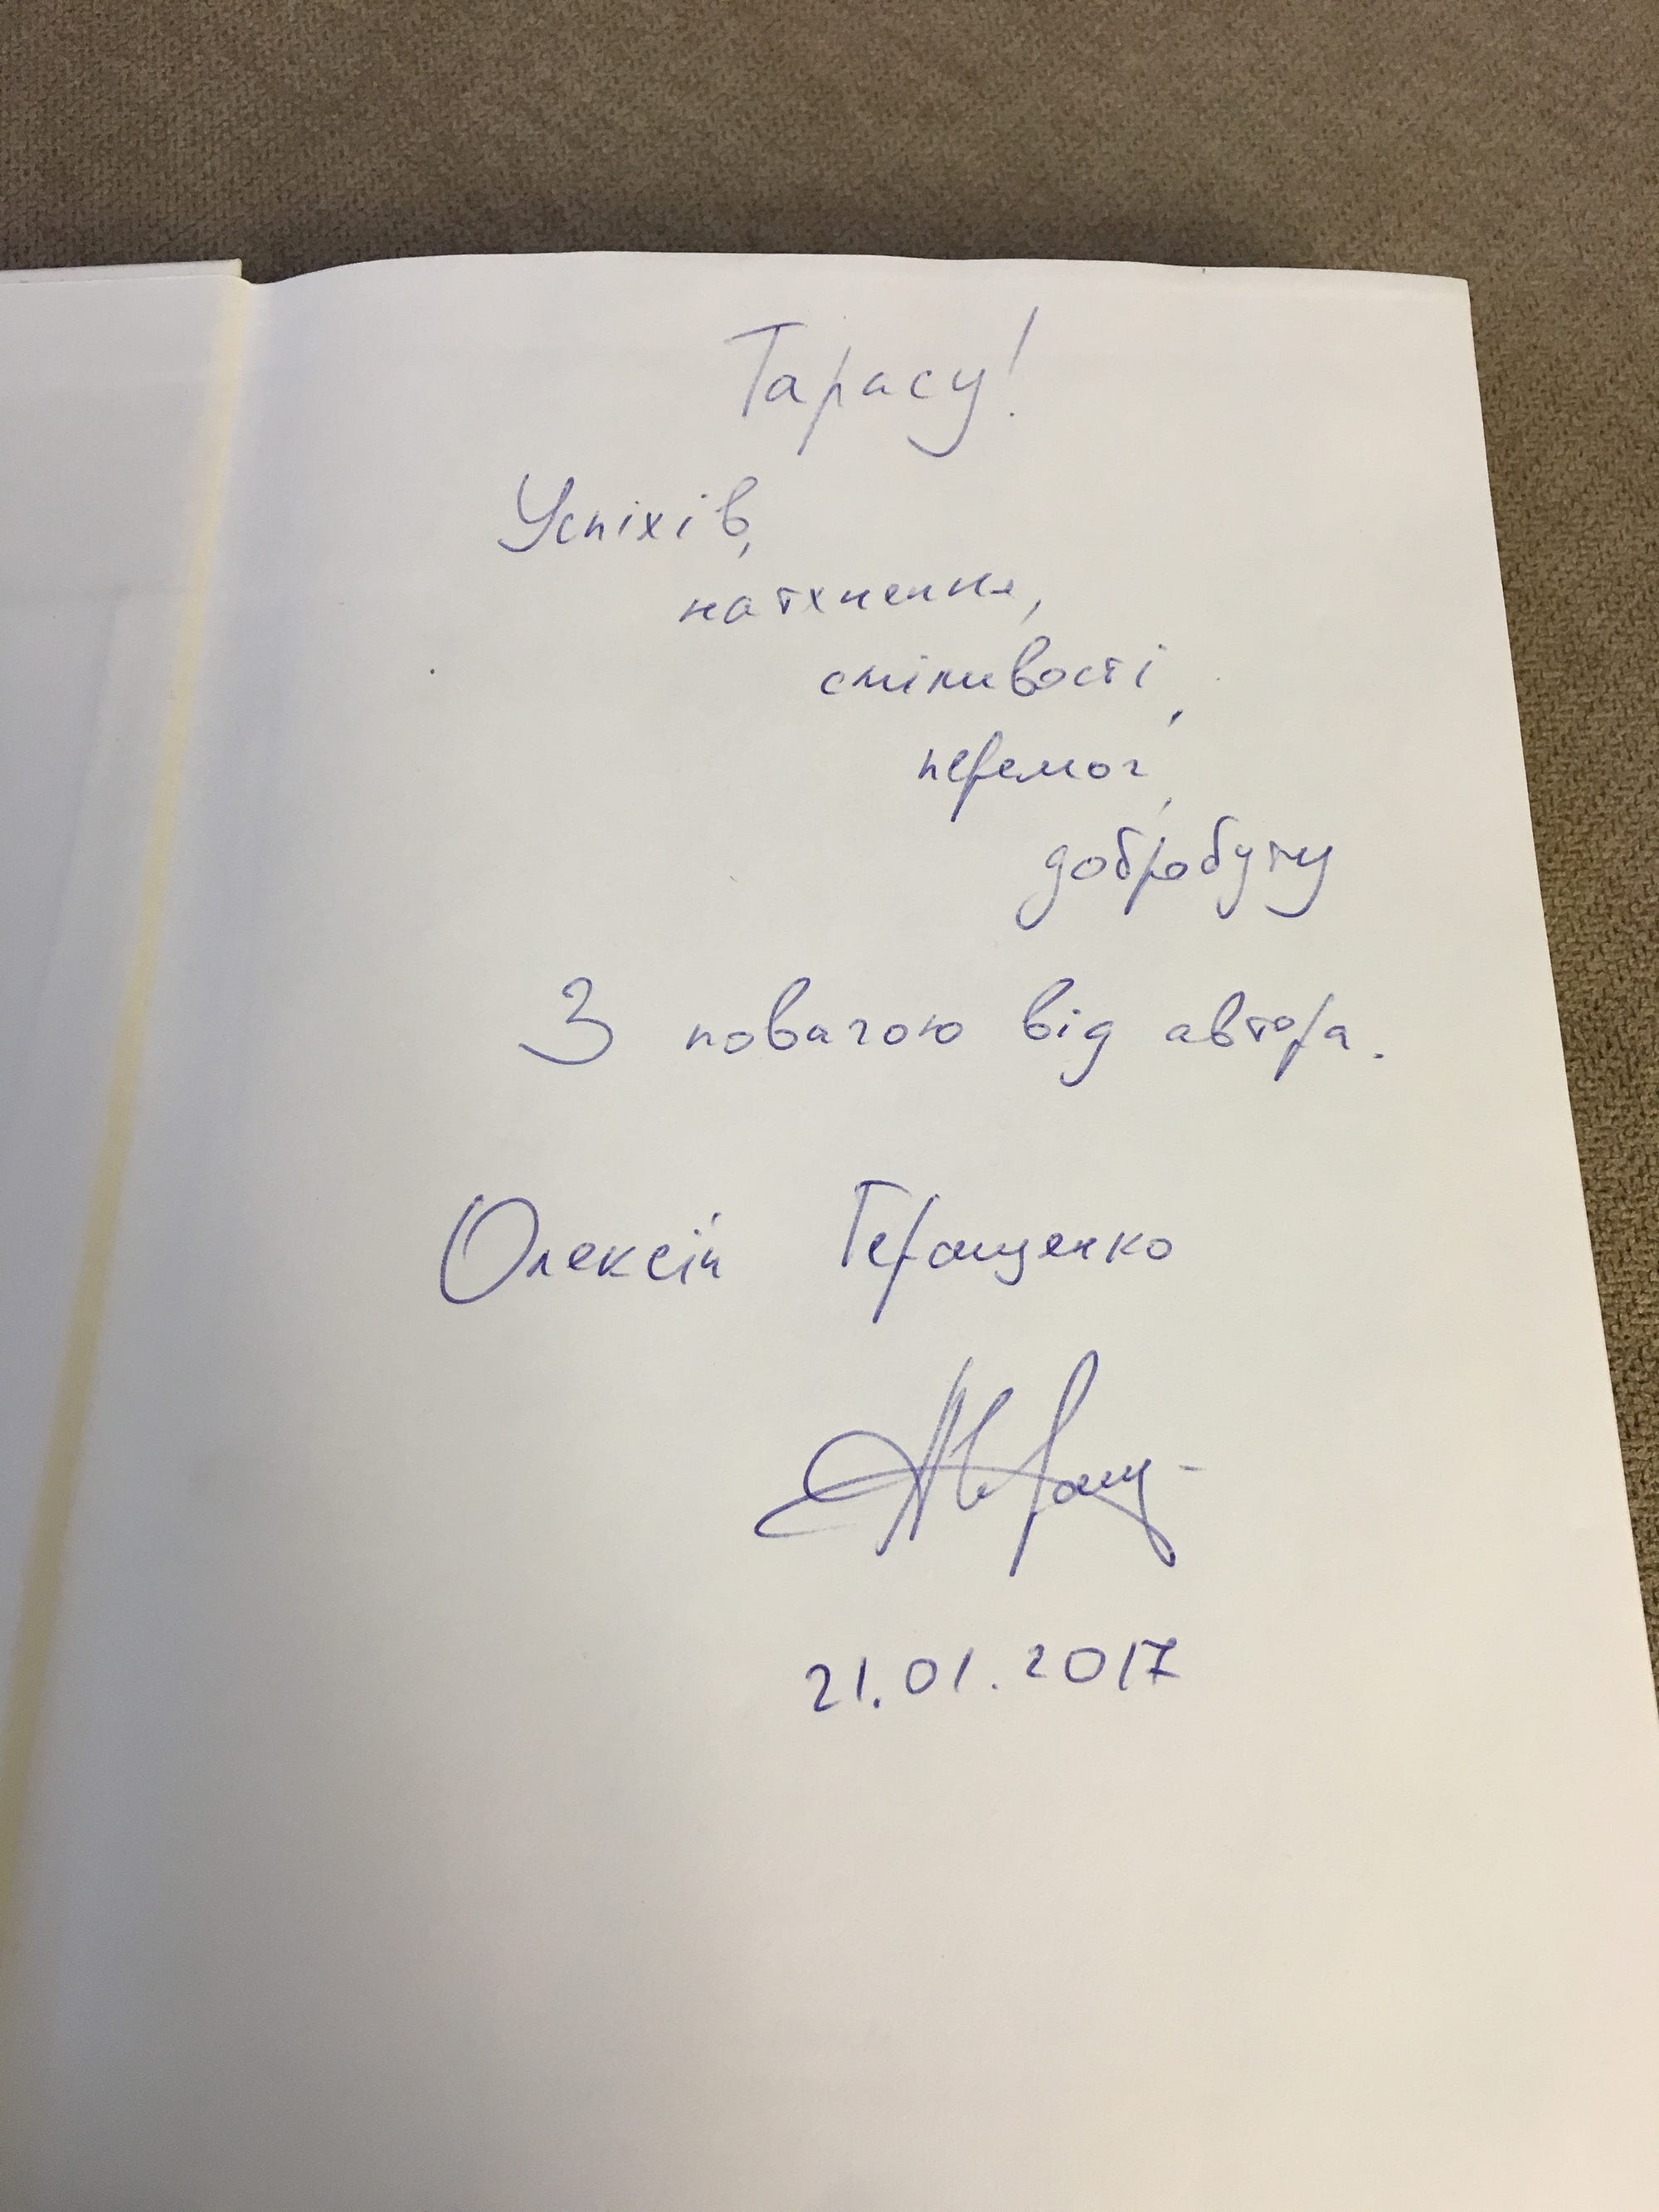 Тарасу!
Успіхів,
натхнення,
сміливості,
перемог,
добробуту
З повагою від автора.
Олексій Геращенко
21.01.2017